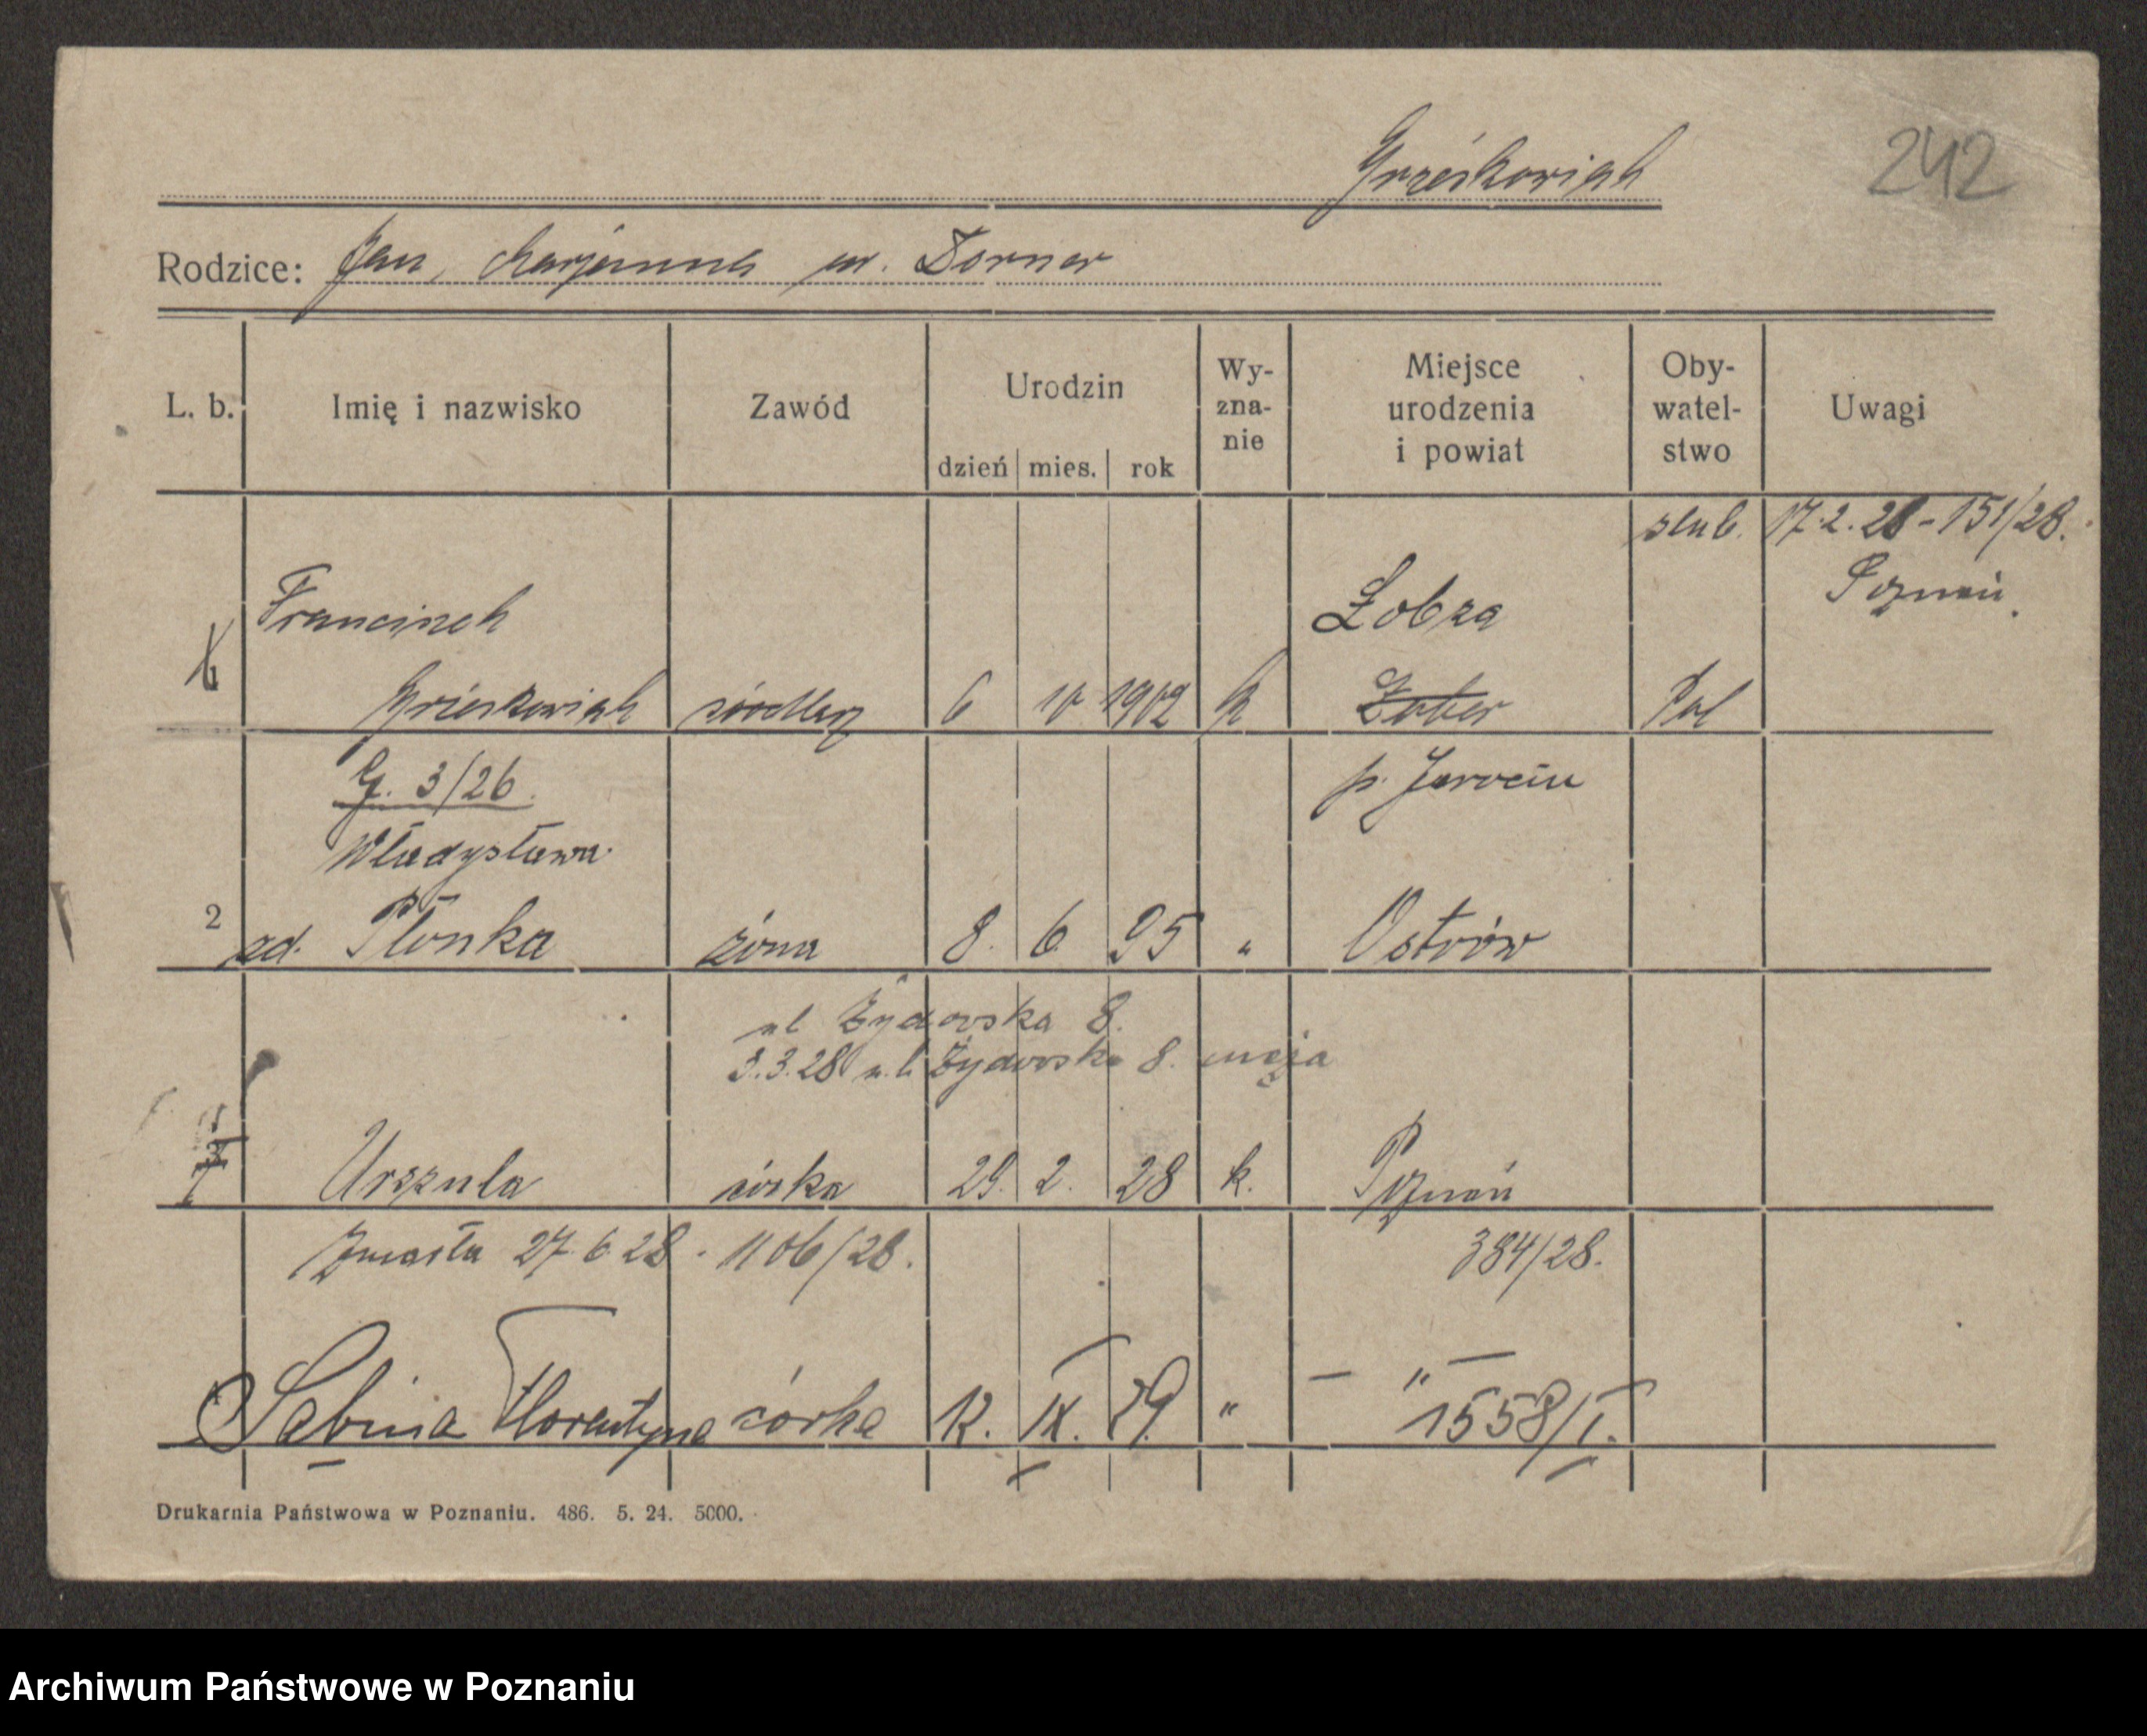 Grześkowiak
242
Rodzice: Jan, Marjanna ur. Dorner
L. b.
Imię i nazwisko
Zawód
Urodzin
dzień mies. rok
Wy-
zna-
nie
Miejsce
urodzenia
i powiat
Oby-
watel-
stwo
Uwagi
ślub. 17.2.28 - 151/28.
Poznań.
Franciszek
Łobza
Grześkowiak siodlarz 6 10 1902 k Pol
G. 3/26.
p. Jarocin
Władysława
2 zd. Płonka żona 8. 6. 95 " Ostrów
ul Żydowska 8.
3.3.28 ul. Żydowska 8. męża
Urszula córka 29. 2. 28 k. Poznań
Zmarła 27.6.28. 1106/28.
384/28.
Sabina Florentyna córka 12. IX. 29. " — " —
1558/I.
Drukarnia Państwowa w Poznaniu. 486. 5. 24. 5000.
Archiwum Państwowe w Poznaniu